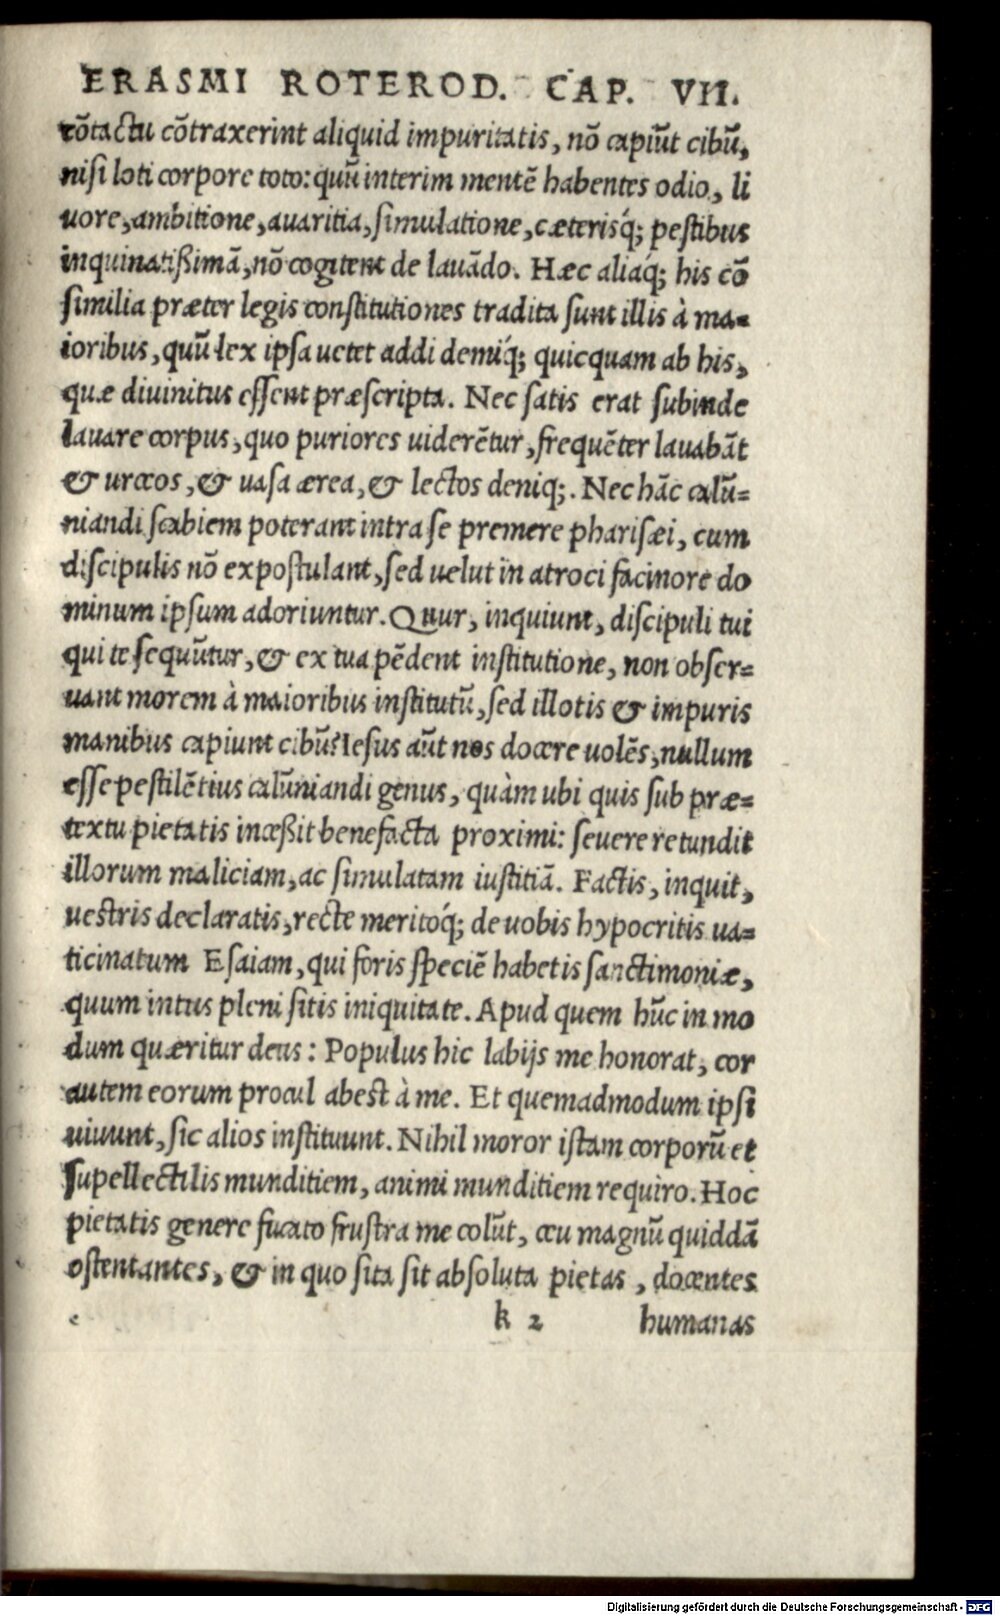 ERASMI ROTEROD. CAP. VII.
cõtactu cõtraxerint aliquid impuritatis, nõ capiũt cibũ,
nisi loti corpore toto: quũ interim mentẽ habentes odio, li
uore, ambitione, auaritia, simulatione, cæterisq́; pestibus
inquinatißimã, nõ cogitent de lauãdo. Hæc aliaq́; his cõ
similia præter legis constitutiones tradita sunt illis à ma=
ioribus, quũ lex ipsa uetet addi demíq́; quicquam ab his,
quæ diuinitus essent præscripta. Nec satis erat subinde
lauare corpus, quo puriores uiderẽtur, frequẽter lauabãt
& urceos, & uasa ærea, & lectos deniq;. Nec hãc calũ=
niandi scabiem poterant intra se premere pharisæi, cum
discipulis nõ expostulant, sed uelut in atroci facinore do
minum ipsum adoriuntur. Quur, inquiunt, discipuli tui
qui te sequũtur, & ex tua pẽdent institutione, non obser=
uant morem à maioribus institutũ, sed illotis & impuris
manibus capiunt cibũ? Iesus aũt nos docere uolẽs, nullum
esse pestilẽtius calũniandi genus, quàm ubi quis sub præ=
textu pietatis inceßit benefacta proximi: seuere retundit
illorum maliciam, ac simulatam iustitiã. Factis, inquit,
uestris declaratis, recte meritoq́; de uobis hypocritis ua=
ticinatum Esaiam, qui foris speciẽ habetis sanctimoniæ,
quum intus pleni sitis iniquitate. Apud quem hũc in mo
dum quæritur deus: Populus hic labijs me honorat, cor
autem eorum procul abest à me. Et quemadmodum ipsi
uiuunt, sic alios instituunt. Nihil moror istam corporũ et
supellectilis munditiem, animi munditiem requiro. Hoc
pietatis genere fucato frustra me colũt, ceu magnũ quiddã
ostentantes, & in quo sita sit absoluta pietas, docentes
k 2 humanas
Digitalisierung gefördert durch die Deutsche Forschungsgemeinschaft - DFG